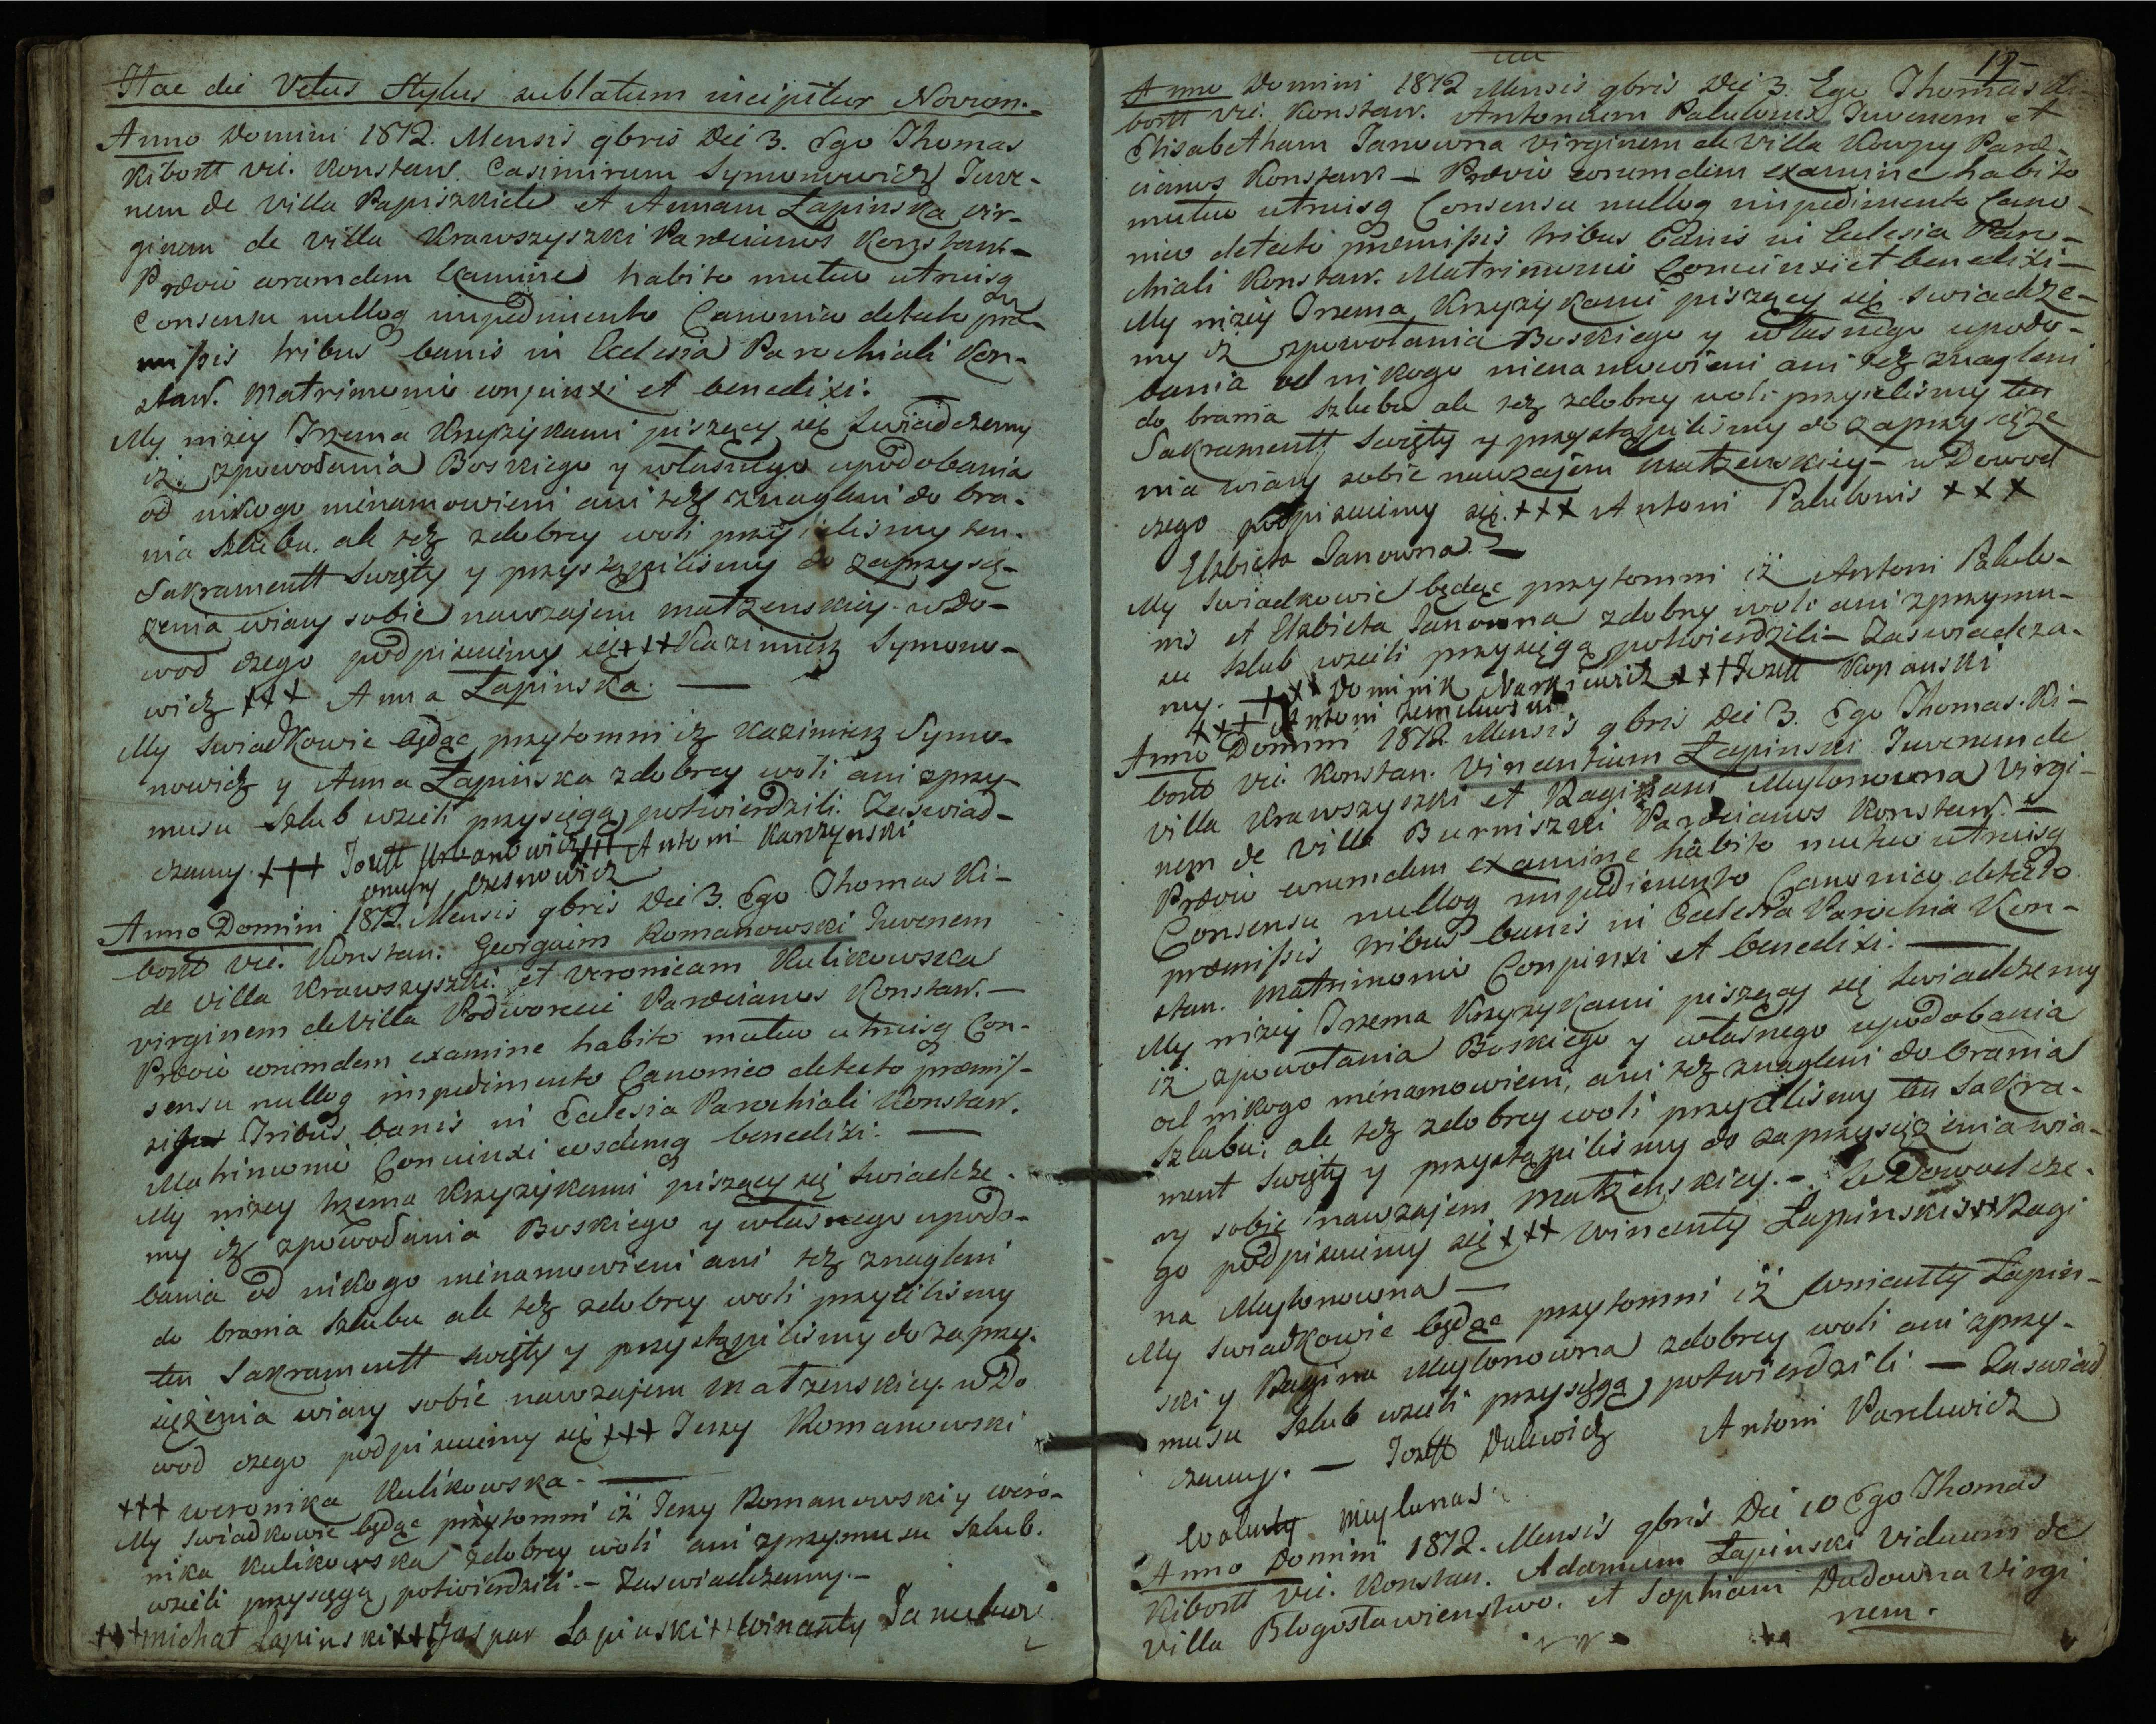 Hac die Vetus Stylus sublatum incipitur Novum.
Anno Domini 1812. Mensis 9bris Die 3. Ego Thomas
Kibortt vic. Konstaw. Casimirum Symonowicz Juve-
nem de villa Papiszkiele et Annam Łapinska vir-
ginem de villa Krawszyszki Parocianos Konstant-
Prævio eorumdem Examine habito mutuo utriusq
Consensu nulloq impedimento Canonico detecto præ-
missis tribus banis in Ecclesia Parochiali Kon-
staw. Matrimonio conjunxi et benedixi.
My niżey Trzema Krzyżykami piszący się świadczemy
iż zpowodania Boskiego y własnego upodobania
od nikogo nienamowieni ani też znagleni do bra-
nia szlubu. ale też zdobrey woli przyieliśmy ten.
Sakramentt Swięty y przystąpiliśmy do zaprzysię-
żenia wiary sobie nawzajem małzenskiey. w Do-
wod czego podpisuiemy się +++ Kazimierz Symono-
wicz +++ Anna Łapinska. —
My Swiadkowie będąc przytomni iż Kazimierz Symo-
nowicz y Anna Łapinska zdobrey woli ani zprzy-
musu szlub wzieli przysięgą potwierdzili. Zaswiad-
czamy. +++ Jozeff Urbanowicz +++ Antoni Karzynski
Czesnowicz
Anno Domini 1812. Mensis 9bris Die 3. Ego Thomas Ki-
bortt vic. Konstan. Georgium Romanowski Juvenem
de villa Krawszyszki. et Veronicam Kulikowska
virginem de Villa Podworcie Parocianos Konstaw. —
Prævio eorumdem examine habito mutuo utriusq Con-
sensu nulloq impedimento Canonico detecto præmis-
Tribus banis in Ecclesia Parochiali Konstaw.
Matrimonio Conjunxi eosdemq benedixi. —
My niżey trzema Krzyżykami piszący się swiadcze-
my iż zpowodania Boskiego y własnego upodo-
bania od nikogo nienamowieni ani też znagleni
do brania szlubu ale też zdobrey woli przyieliśmy
ten Sakramentt swięty y przystąpiliśmy do zaprzy-
siężenia wiary sobie nawzajem Małzenskiey. w Do
wod czego podpisuiemy się +++ Jerzy Romanowski
+++ weronika Kulikowska. —
My swiadkowie będąc przytomni iż Jerzy Romanowski y wero-
nika Kulikowska zdobrey woli ani zprzymusu szlub.
wzieli przysięgą potwierdzili. — Zaswiadczamy. —
+++ michał Łapinski +++ Gaspar Łapinski ++ Winanty
19
Anno Domini 1812 Mensis 9bris Die 3. Ego Thomas Ki-
bortt vic. Konstaw. Antonium Palulonis Juvenem et
Elisabetham Janowna virginem de Villa Kowpy Paro-
cianos Konstant — Prævio eorumdem examine habito
mutuo utriusq Consensu nulloq impedimento Cano-
nico detecto præmissis tribus Banis in Eclesia Paro-
chiali Konstaw. Matrimonio Conjunxi et benedixi —
My niżey Trzema Krzyżykami piszący się swiadcze-
my iż zpowołania Boskiego y własnego upodo-
bania od nikogo nienamowieni ani też znagleni
do brania szlubu ale też zdobrey woli przyieliśmy ten
Sakramentt Swięty y przystąpiliśmy do zaprzysięże
nia wiary sobie nawzajem Małzenskiey — w Dowod
czego podpisuiemy się. +++ Antoni Palulonis +++
Elzbieta Janowna. —
My Swiadkowie będąc przytomni iż Antoni Palulo-
nis et Elzbieta Janowna zdobry woli ani zprzymu-
su szlub wzieli przysięgą potwierdzili — Zaswiadcza-
my. — +++ Dominik Narkiewicz +++ Jozeff Kopanski
+++ Antoni
Anno Domini 1812. Mensis 9bris Die 3. Ego Thomas. Ki-
bortt vic. Konstan. Vincentium Łapinski Juvenem de
villa Krawszyszki et Raginam Muylonowna Virgi-
nem de Villa Burniszki Parocianos Konstaw. —
Prævio eorumdem examine habito mutuo utriusq
Consensu nulloq impedimento Canonico detecto
præmissis tribus banis in Ecclesia Parochia Kon-
stan. Matrimonio Conjunxi et benedixi. —
My niżey Trzema Krzyżykami piszący się swiadczemy
iż zpowołania Boskiego y własnego upodobania
od nikogo nienamowieni, ani też znagleni do brania
szlubu; ale też zdobrey woli przyieliśmy ten Sakra-
ment Swięty y przystąpiliśmy do zaprzysiężenia wia-
ry sobie nawzajem Małzenskiey. — w Dowod cze-
go podpisuiemy się +++ Wincenty Łapinski +++ Ragi
na Muylonowna —
My Swiadkowie będąc przytomni iż Wnicentty Łapin-
ski y Ragina Muylonowna zdobrey woli ani zprzy-
musu szlub wzieli przysięgą potwierdzili — Zaswiad
czamy. — Jozeff Dulewicz Antoni Pawlewicz
Walenty Muylunas.
Anno Domini 1812. Mensis 9bris Die 10 Ego Thomas
Kibortt vic. Konstan. Adamum Łapinski Viduum de
villa Błogosławienstwo. et Sophiam Dudowna Virgi
nem.